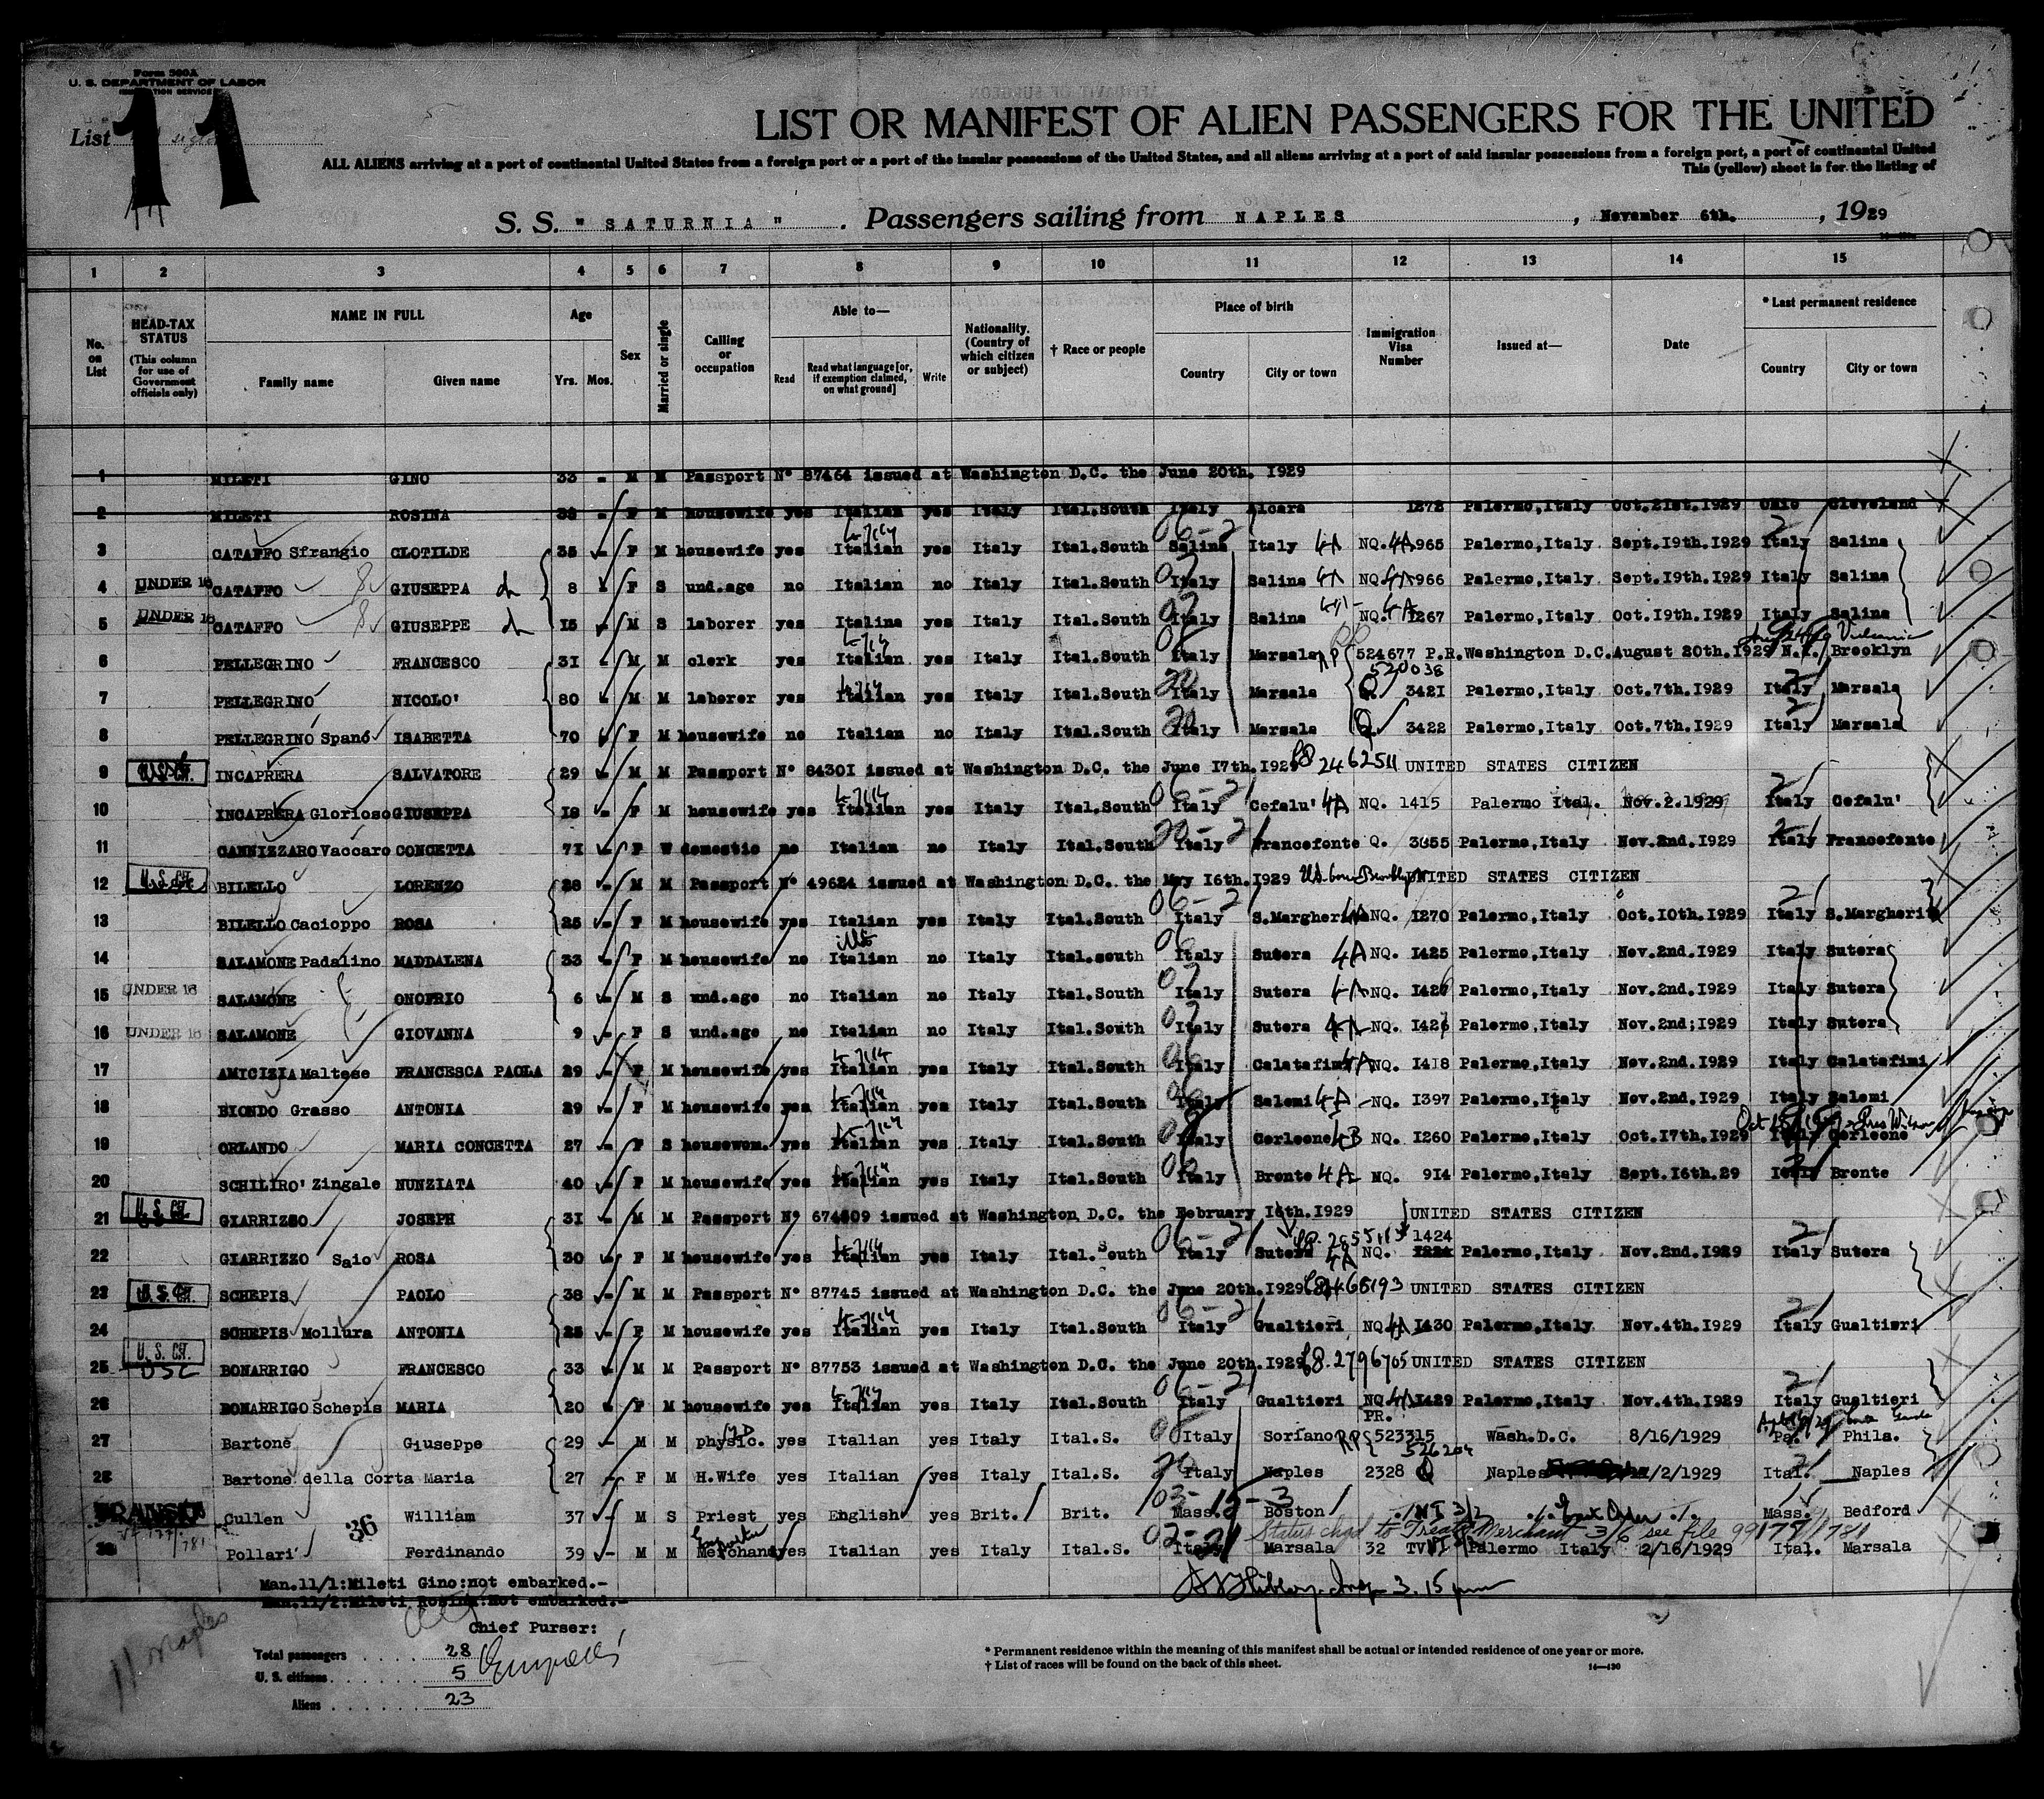 Form 500A
U. S. DEPARTMENT OF LABOR
IMMIGRATION SERVICE
List 11
LIST OR MANIFEST OF ALIEN PASSENGERS FOR THE UNITED
ALL ALIENS arriving at a port of continental United States from a foreign port or a port of the insular possessions of the United States, and all aliens arriving at a port of said insular possessions from a foreign port, a port of continental United
This (yellow) sheet is for the listing of
S. S. " SATURNIA " . Passengers sailing from NAPLES , November 6th. , 1929
1 2 3 4 5 6 7 8 9 10 11 12 13 14 15
No. on List
HEAD-TAX STATUS (This column for use of Government officials only)
NAME IN FULL Family name Given name
Age Yrs. Mos.
Sex
Married or single
Calling or occupation
Able to— Read Read what language [or, if exemption claimed, on what ground] Write
Nationality. (Country of which citizen or subject)
† Race or people
Place of birth Country City or town
Immigration Visa Number
Issued at—
Date
* Last permanent residence Country City or town
1 MILETI GINO 33 - M M Passport N° 87464 issued at Washington D.C. the June 20th. 1929
2 MILETI ROSINA - F M housewife yes Italian yes Italy Ital.South Italy Alcara 1272 Palermo,Italy Oct.21st.1929 Ohio Cleveland
3 CATAFFO Sfrangio CLOTILDE 35 F M housewife yes Italian yes Italy Ital.South Salina Italy 4A NQ. 965 Palermo,Italy Sept.19th.1929 Italy Salina
4 UNDER 16 CATAFFO GIUSEPPA 8 F S und.age no Italian no Italy Ital.South Italy Salina 4A NQ. 966 Palermo,Italy Sept.19th.1929 Italy Salina
5 UNDER 16 CATAFFO GIUSEPPE 15 M S laborer yes Italina yes Italy Ital.South Italy Salina NQ. 4A 1267 Palermo,Italy Oct.19th.1929 Italy Salina
6 PELLEGRINO FRANCESCO 31 M M clerk yes Italian yes Italy Ital.South Italy Marsala RP 524677 P.R. Washington D.C. August 20th.1929 N.Y. Brooklyn
520038
7 PELLEGRINO NICOLO' 80 M M laborer yes Italian yes Italy Ital.South Italy Marsala Q 3421 Palermo,Italy Oct.7th.1929 Italy Marsala
8 PELLEGRINO Spanó ISABETTA 70 F M housewife no Italian no Italy Ital.South Italy Marsala Q 3422 Palermo,Italy Oct.7th.1929 Italy Marsala
9 INCAPRERA SALVATORE 29 M M Passport N° 84301 issued at Washington D.C. the June 17th.1929 2462511 UNITED STATES CITIZEN
10 INCAPRERA Glorioso GIUSEPPA 18 F M housewife yes Italian yes Italy Ital.South 06-21 Italy Cefalu' 4A NQ. 1415 Palermo Ital. Nov.2.1929 Italy Cefalu'
11 CANNIZZARO Vaccaro CONCETTA 71 F W domestic no Italian no Italy Ital.South Italy Francofonte Q. 3655 Palermo,Italy Nov.2nd.1929 Italy Francofonte
12 U. S. CIT. BILELLO LORENZO 28 M M Passport N° 49624 issued at Washington D.C. the May 16th.1929 UNITED STATES CITIZEN
13 BILELLO Cacioppo ROSA 25 F M housewife yes Italian yes Italy Ital.South 06-21 Italy S.Margherita NQ. 1270 Palermo,Italy Oct.10th.1929 Italy S.Margherita
14 SALAMONE Padalino MADDALENA 33 F M housewife no Italian no Italy Ital.south Italy Sutera 4A NQ. 1425 Palermo,Italy Nov.2nd.1929 Italy Sutera
15 UNDER 16 SALAMONE ONOFRIO 6 M S und.age no Italian no Italy Ital.South Italy Sutera 4A NQ. 1427 Palermo,Italy Nov.2nd.1929 Italy Sutera
16 UNDER 16 SALAMONE GIOVANNA 9 F S und.age no Italian no Italy Ital.South Italy Sutera 4A NQ. 1426 Palermo,Italy Nov.2nd;1929 Italy Sutera
17 AMICIZIA Maltese FRANCESCA PAOLA 29 F M housewife yes Italian yes Italy Ital.South Italy Calatafimi 4A NQ. 1418 Palermo,Italy Nov.2nd.1929 Italy Calatafimi
18 BIONDO Grasso ANTONIA 29 F M housewife yes Italian yes Italy Ital.South Italy Salemi 4A NQ. 1397 Palermo,Italy Nov.2nd.1929 Italy Salemi
19 ORLANDO MARIA CONCETTA 27 F S housewom. yes Italian yes Italy Ital.South Italy Corleone 4B NQ. 1260 Palermo,Italy Oct.17th.1929 Italy Corleone
20 SCHILIRO' Zingale NUNZIATA 40 F M housewife yes Italian yes Italy Ital.South Italy Bronte 4A NQ. 914 Palermo,Italy Sept.16th.29 Italy Bronte
21 U. S. CIT. GIARRIZZO JOSEPH 31 M M Passport N° 674809 issued at Washington D.C. the February 16th.1929 UNITED STATES CITIZEN
22 GIARRIZZO Saio ROSA 30 F M housewife yes Italian yes Italy Ital.South 06-21 Italy Sutera 4A NQ. 1424 Palermo,Italy Nov.2nd.1929 Italy Sutera
23 U. S. CIT. SCHEPIS PAOLO 38 M M Passport N° 87745 issued at Washington D.C. the June 20th.1929 UNITED STATES CITIZEN
24 SCHEPIS Mollura ANTONIA 25 F M housewife yes Italian yes Italy Ital.South 06-21 Italy Gualtieri NQ 4A 1430 Palermo,Italy Nov.4th.1929 Italy Gualtieri
25 U. S. CIT. USC BONARRIGO FRANCESCO 33 M M Passport N° 87753 issued at Washington D.C. the June 20th.1929 2796705 UNITED STATES CITIZEN
26 BONARRIGO Schepis MARIA 20 F M housewife yes Italian yes Italy Ital.South 06-21 Italy Gualtieri NQ 4A 1429 Palermo,Italy Nov.4th.1929 Italy Gualtieri
27 Bartone Giuseppe 29 M M physic. yes Italian yes Italy Ital.S. Italy Soriano RP PR. 523315 Wash.D.C. 8/16/1929 Pa. Phila.
526204
28 Bartone della Corta Maria 27 F M H.Wife yes Italian yes Italy Ital.S. Italy Naples 2328 Q Naples /2/1929 Ital. Naples
TRANSIT Cullen William 37 M S Priest yes English yes Brit. Brit. Mass. Boston Mass. Bedford
36 Status chgd to Treaty Merchant 3/6 see file 99178/781
30 Pollari' Ferdinando 39 M M Merchand yes Italian yes Italy Ital.S. Italy Marsala 32 TV Palermo Italy 2/16/1929 Ital. Marsala
Man.11/1:Mileti Gino:not embarked.-
Man.11/2:Mileti Rosina:Not embarked.-
3.15 pm
Chief Purser:
11 Naples
Total passengers 28
U. S. citizens 5
Aliens 23
* Permanent residence within the meaning of this manifest shall be actual or intended residence of one year or more.
† List of races will be found on the back of this sheet.
14—430